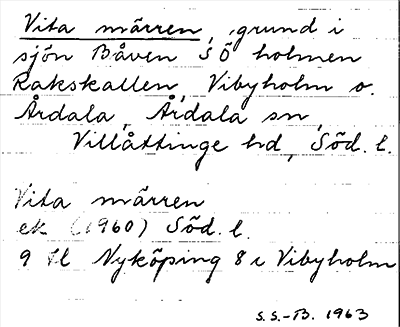 Vita märren, grund i
sjön Båven SÖ holmen
Rakskallen, Vibyholm o.
Årdala, Årdala sn,
Villåttinge hd, Söd. l.
Vita märren
ek (1960) Söd. l.
9 H Nyköping 8 i Vibyholm
S.S.-B. 1963